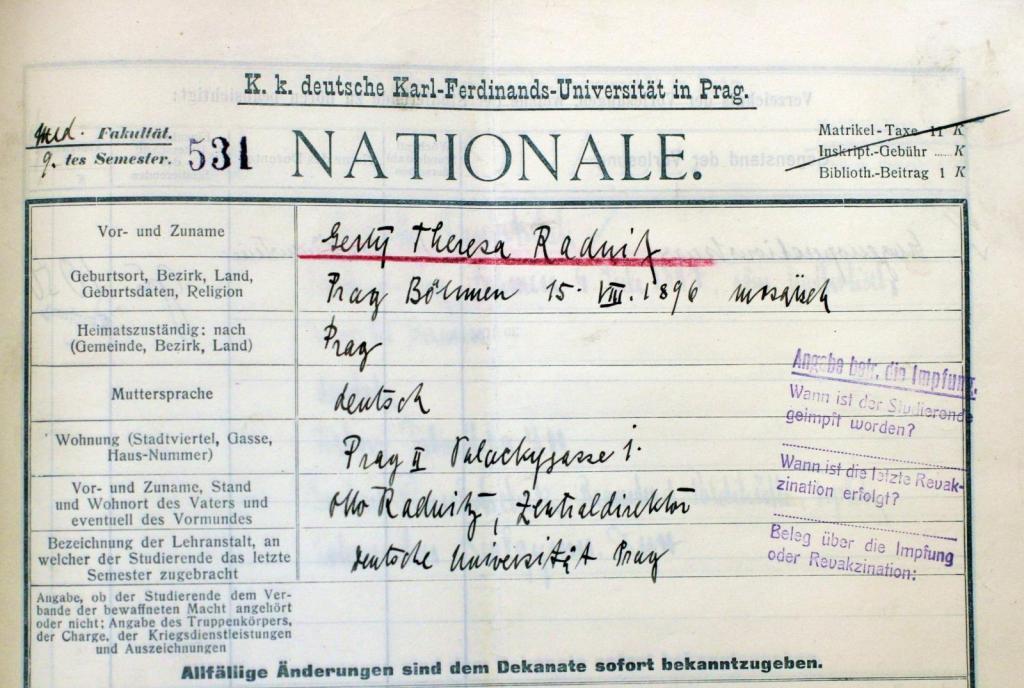 K. k. deutsche Karl-Ferdinands-Universität in Prag.
med. Fakultät.
9. tes Semester. 531
NATIONALE.
Matrikel-Taxe 11 K
Inskript.-Gebühr ..... K
Biblioth.-Beitrag 1 K
Vor- und Zuname
Gerty Theresa Radnitz
Geburtsort, Bezirk, Land,
Geburtsdaten, Religion
Prag Böhmen 15. VIII. 1896 mosaisch
Heimatszuständig: nach
(Gemeinde, Bezirk, Land)
Prag
Muttersprache
deutsch
Wohnung (Stadtviertel, Gasse,
Haus-Nummer)
Prag II Palackygasse 1.
Vor- und Zuname, Stand
und Wohnort des Vaters und
eventuell des Vormundes
Otto Radnitz, Zentraldirektor
Bezeichnung der Lehranstalt, an
welcher der Studierende das letzte
Semester zugebracht
Deutsche Universität Prag
Angabe, ob der Studierende dem Ver-
bande der bewaffneten Macht angehört
oder nicht; Angabe des Truppenkörpers,
der Charge, der Kriegsdienstleistungen
und Auszeichnungen
Angabe betr. die Impfung.
Wann ist der Studierende
geimpft worden?
Wann ist die letzte Revak-
zination erfolgt?
Beleg über die Impfung
oder Revakzination:
Allfällige Änderungen sind dem Dekanate sofort bekanntzugeben.